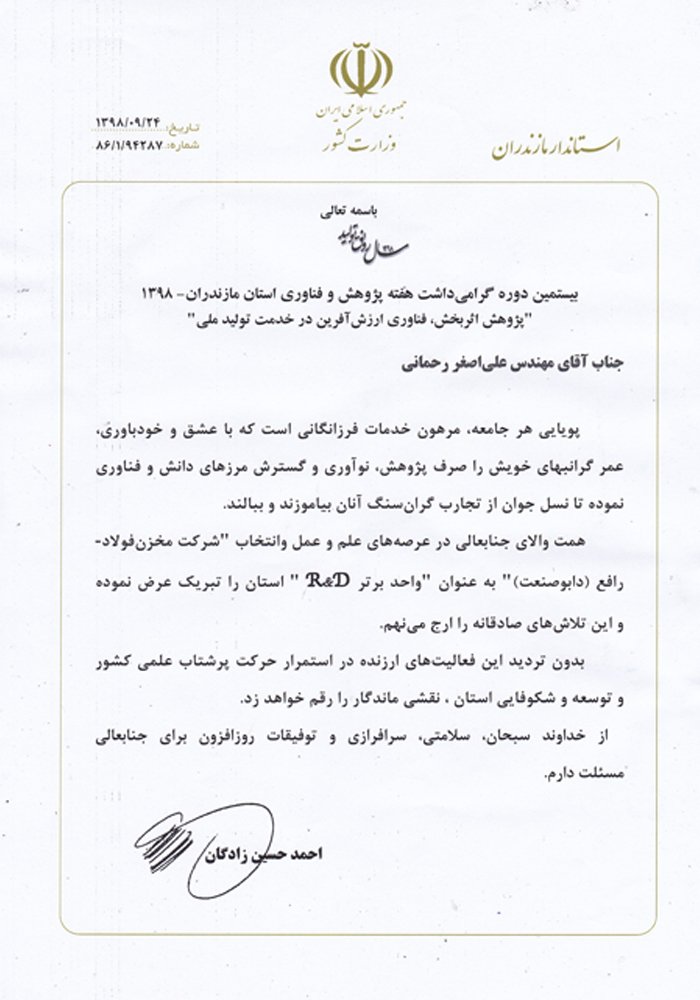 جمهوری اسلامی ایران
وزارت کشور
استاندار مازندران
تاریخ: ۱۳۹۸/۰۹/۲۴
شماره: ۸۶/۱/۹۴۲۸۷
باسمه تعالی
سال رونق تولید
بیستمین دوره گرامی‌داشت هفته پژوهش و فناوری استان مازندران- ۱۳۹۸
"پژوهش اثربخش، فناوری ارزش‌آفرین در خدمت تولید ملی"
جناب آقای مهندس علی‌اصغر رحمانی
پویایی هر جامعه، مرهون خدمات فرزانگانی است که با عشق و خودباوری،
عمر گرانبهای خویش را صرف پژوهش، نوآوری و گسترش مرزهای دانش و فناوری
نموده تا نسل جوان از تجارب گران‌سنگ آنان بیاموزند و ببالند.
همت والای جنابعالی در عرصه‌های علم و عمل وانتخاب "شرکت مخزن‌فولاد-
رافع (دابوصنعت)" به عنوان "واحد برتر R&D " استان را تبریک عرض نموده
و این تلاش‌های صادقانه را ارج می‌نهم.
بدون تردید این فعالیت‌های ارزنده در استمرار حرکت پرشتاب علمی کشور
و توسعه و شکوفایی استان ، نقشی ماندگار را رقم خواهد زد.
از خداوند سبحان، سلامتی، سرافرازی و توفیقات روزافزون برای جنابعالی
مسئلت دارم.
احمد حسین زادگان